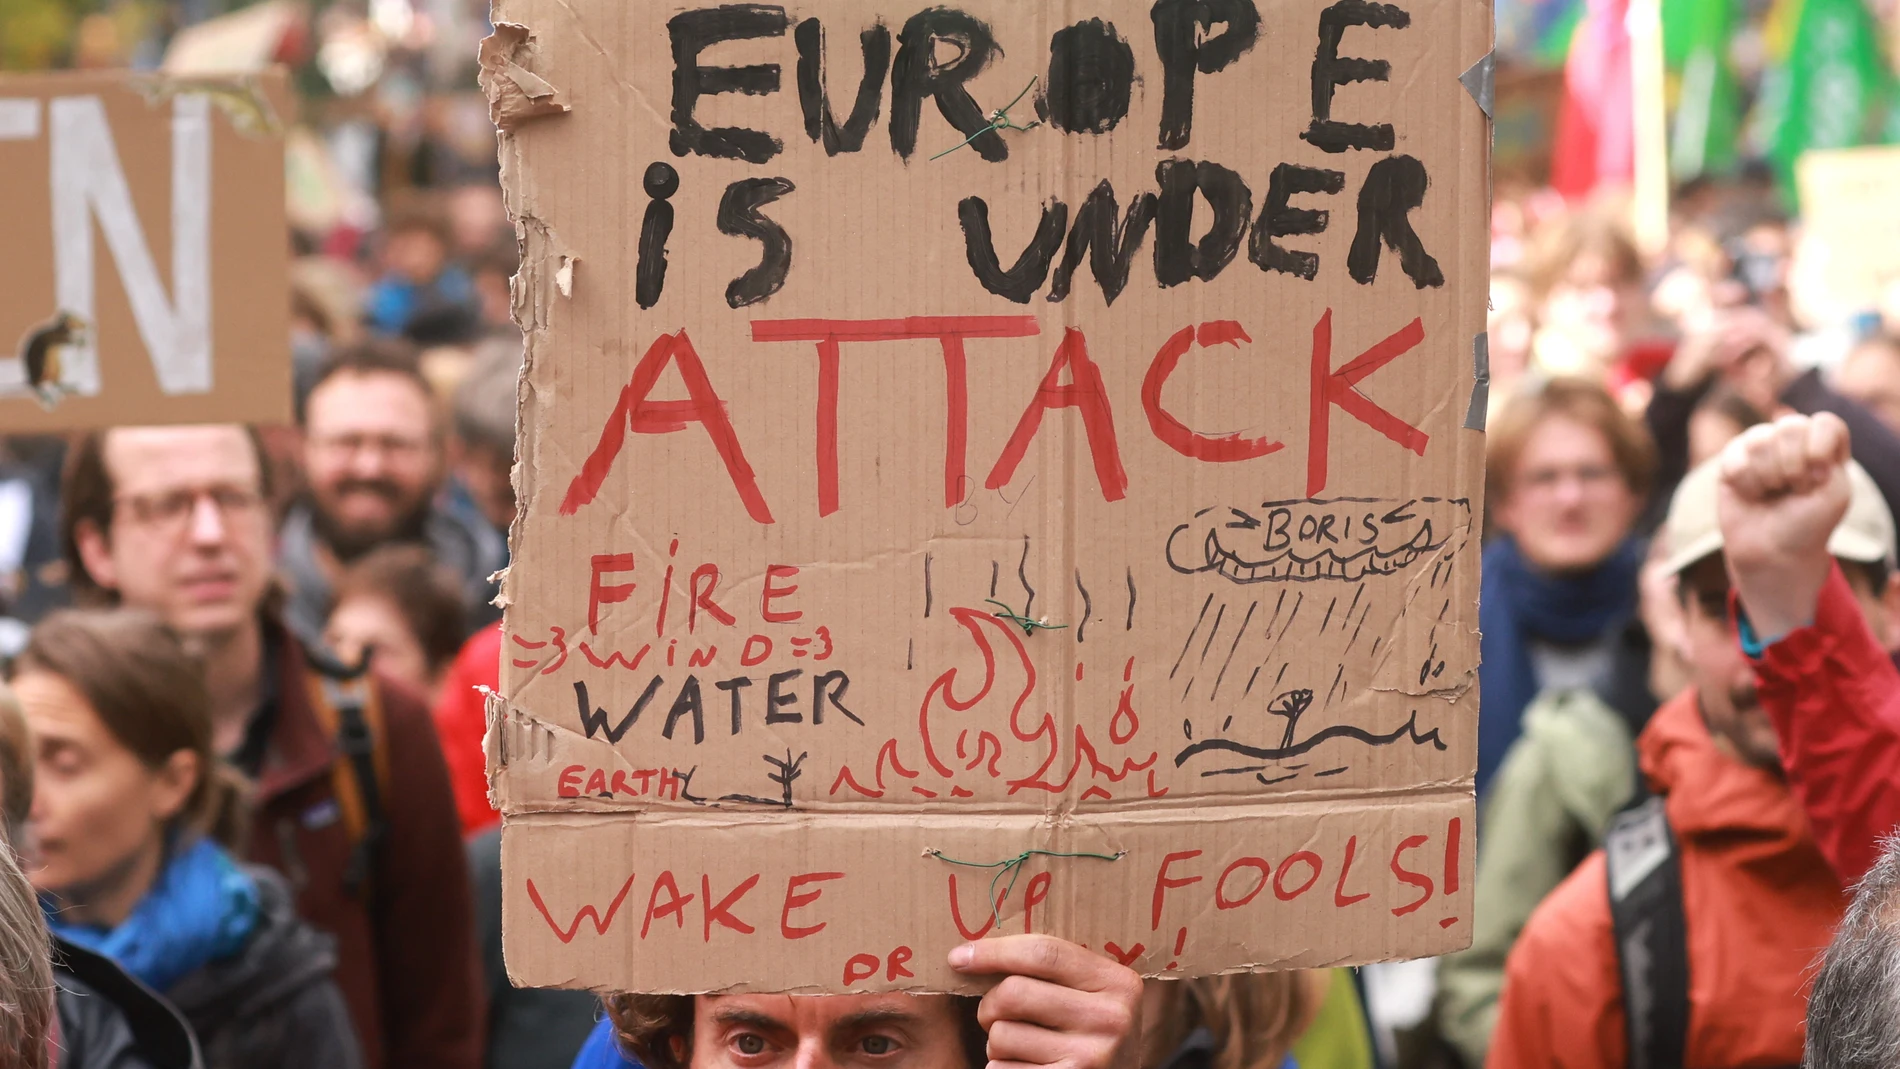 EN
EUROPE
iS UNDER
ATTACK
BY
BORIS
FiRE
WiND
WATER
EARTH
WAKE UP FOOLS!
OR